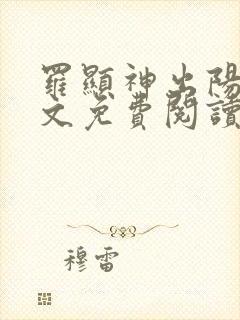 羅顯神出陽
文免費閱讀
穆雷